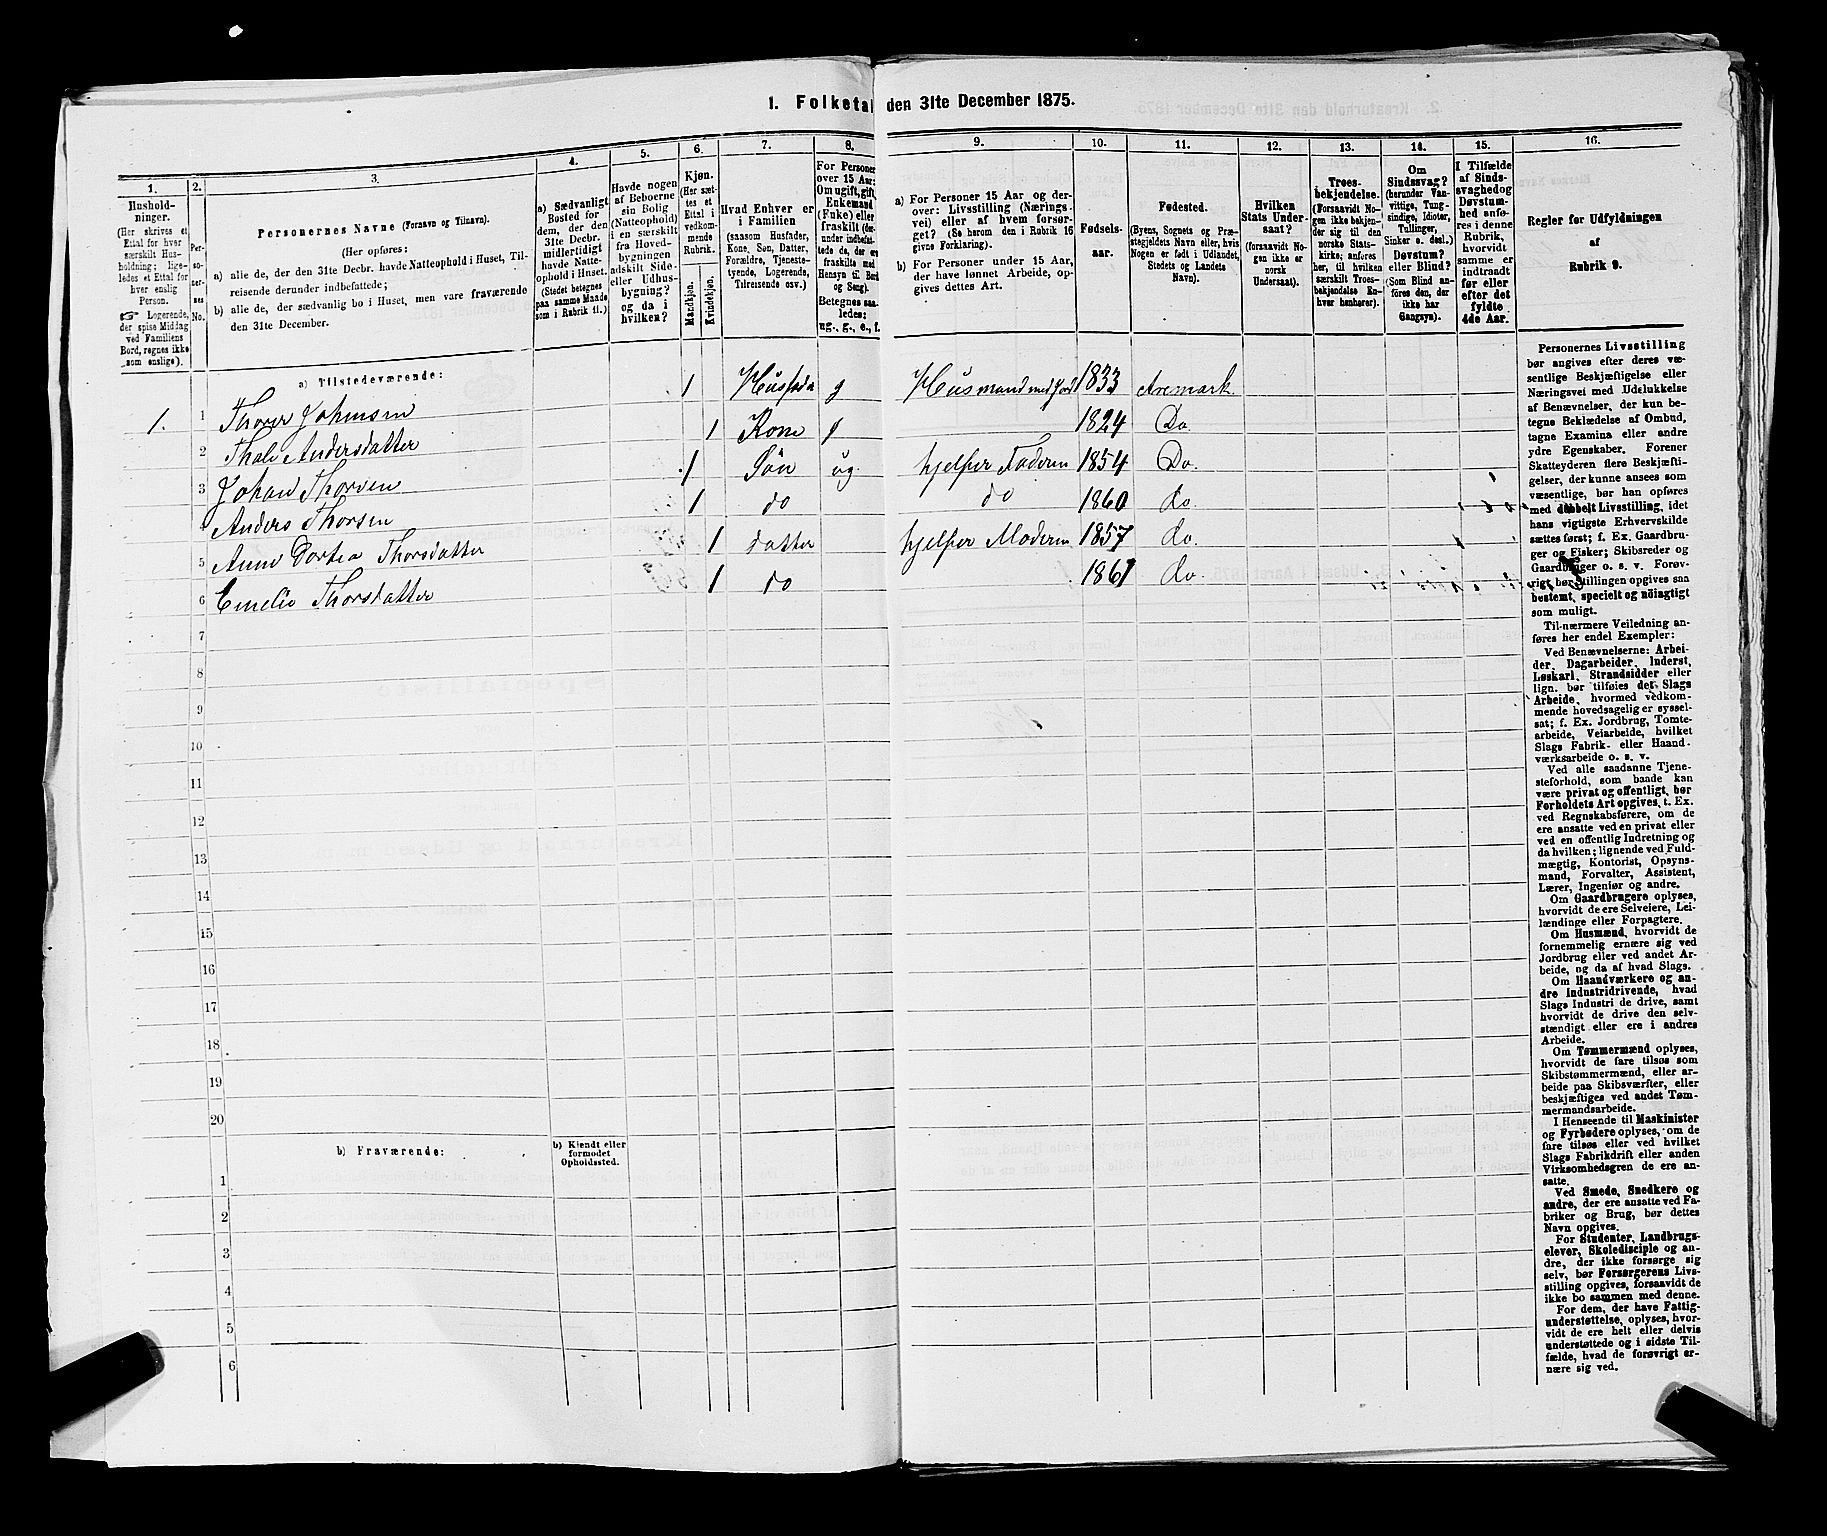 1. Folketal den 31te December 1875.
1.
Hushold-
ninger.
(Her skrives et
Ettal for hver
særskilt Hus-
holdning; lige-
ledes et Ettal for
hver enslig
Person.
☞ Logerende,
der spise Middag
ved Familiens
Bord, regnes ikke
som enslige).
2.
Per-
so-
ner-
nes
No.
3.
Personernes Navne (Fornavn og Tilnavn).
(Her opføres:
a) alle de, der den 31te Decbr. havde Natteophold i Huset, Til-
reisende derunder indbefattede;
b) alle de, der sædvanlig bo i Huset, men vare fraværende
den 31te December.
4.
a) Sædvanligt
Bosted for
dem, der den
31te Decbr.
midlertidigt
havde Natte-
ophold i Huset.
(Stedet betegnes
paa samme Maade
som i Rubrik 11.)
5.
Havde nogen
af Beboerne
sin Bolig
(Natteophold)
i en særskilt
fra Hoved-
bygningen
adskilt Side-
eller Udhus-
bygning?
og da i
hvilken?
6.
Kjøn.
(Her sæt-
tes et
Ettal i
vedkom-
mende
Rubrik.)
Mandkjøn.
Kvindekjøn.
7.
Hvad Enhver er
i Familien
(saasom Husfader,
Kone, Søn, Datter,
Forældre, Tjeneste-
tyende, Logerende,
Tilreisende osv.)
8.
For Personer
over 15 Aar:
Om ugift, gift,
Enkemand
(Enke) eller
fraskilt (der-
under indbefat-
tede de, der ere
fraskilte med
Hensyn til Bord
og Seng).
Betegnes saa-
ledes:
ug., g., e., f.
9.
a) For Personer 15 Aar og der-
over: Livsstilling (Nærings-
vei) eller af hvem forsør-
get? (Se herom den i Rubrik 16
givne Forklaring).
b) For Personer under 15 Aar,
der have lønnet Arbeide, op-
gives dettes Art.
10.
Fødsels-
aar.
11.
Fødested.
(Byens, Sognets og Præ-
stegjeldets Navn eller, hvis
Nogen er født i Udlandet,
Stedets og Landets
Navn).
12.
Hvilken
Stats Under-
saat?
(forsaavidt No-
gen ikke er
norsk
Undersaat).
13.
Troes-
bekjendelse.
(Forsaavidt No-
gen ikke bekjen-
der sig til den
norske Stats-
kirke, anføres
her, til hvilken
særskilt Troes-
bekjendelse En-
hver henhører).
14.
Om
Sindssvag?
(herunder Van-
vittige, Tung-
sindige, Idioter,
Tullinger,
Sinker o. desl.)
Døvstum?
eller Blind?
(Som Blind an-
føres den, der
ikke har
Gangsyn).
15.
I Tilfælde
af Sinds-
svaghed og
Døvstum-
hed anfø-
res i denne
Rubrik,
hvorvidt
samme er
indtraadt
før eller
efter det
fyldte
4de Aar.
16.
Regler før Udfyldningen
af
Rubrik 9.
a) Tilstedeværende:
1. 1 Thorer Johnsen 1 Husfada g Husmand med Jord 1833 Aremark.
2 Thale Andersdatter 1 Kone g 1824 Do
3 Johan Thorsen 1 Søn ug. hjelper Faderen 1854 Do.
4 Anders Thorsen 1 do do 1860 do.
5 Anne Dortea Thorsdatter 1 datter hjelper Moderen 1857 do.
6 Emelie Thorsdatter 1 do 1861 do.
7
8
9
10
11
12
13
14
15
16
17
18
19
20
b) Fraværende:
b) Kjendt eller
formodet
Opholdssted.
1
2
3
4
5
6
Personernes Livsstilling
bør angives efter deres væ-
sentlige Beskjæftigelse eller
Næringsvei med Udelukkelse
af Benævnelser, der kun be-
tegne Beklædelse af Ombud,
tagne Examina eller andre
ydre Egenskaber. Forener
Skatteyderen flere Beskjæfti-
gelser, der kunne ansees som
væsentlige, bør han opføres
med dobbelt Livsstilling, idet
hans vigtigste Erhvervskilde
sættes først; f. Ex. Gaardbru-
ger og Fisker; Skibsreder og
Gaardbruger o. s. v. Forøv-
rigt bør Stillingen opgives saa
bestemt, specielt og nøiagtigt
som muligt.
Til nærmere Veiledning an-
føres her endel Exempler:
Ved Benævnelserne: Arbei-
der, Dagarbeider, Inderst,
Løskarl, Strandsidder eller
lign. bør tilføies det Slags
Arbeide, hvormed vedkom-
mende hovedsagelig er syssel-
sat; f. Ex. Jordbrug, Tomte-
arbeide, Veiarbeide, hvilket
Slags Fabrik- eller Haand-
værksarbeide o. s. v.
Ved alle saadanne Tjene-
steforhold, som baade kan
være privat og offentligt, bør
Forholdets Art opgives, t. Ex.
ved Regnskabsførere, om de
ere ansatte ved en privat eller
ved en offentlig Indretning og
da hvilken; lignende ved Fuld-
mægtig, Kontorist, Opsyns-
mand, Forvalter, Assistent,
Lærer, Ingeniør og andre.
Om Gaardbrugere oplyses,
hvorvidt de ere Selveiere, Lei-
lændinge eller Forpagtere.
Om Husmænd, hvorvidt de
fornemmelig ernære sig ved
Jordbrug eller ved andet Ar-
beide, og da af hvad Slags.
Om Haandværkere og an-
dre Industridrivende, hvad
Slags Industri de drive, samt
hvorvidt de drive den selv-
stændigt eller ere i andres
Arbeide.
Om Tømmermænd oplyses,
hvorvidt de fare tilsøs som
Skibstømmermænd, eller ar-
beide paa Skibsværfter, eller
beskjæftiges ved andet Tøm-
mermandsarbeide.
I Henseende til Maskinister
og Fyrbødere oplyses, om de
fare tilsøs eller ved hvilket
Slags Fabrikdrift eller anden
Virksomhedsgren de ere an-
satte.
Ved Smede, Snedkere og
andre, der ere ansatte ved Fa-
briker og Brug, bør dettes
Navn opgives.
For Studenter, Landbrugs-
elever, Skoledisciple og an-
dre, der ikke forsørge sig
selv, bør Forsørgerens Livs-
stilling opgives, forsaavidt de
ikke bo sammen med denne.
For dem, der have Fattig-
understøttelse, oplyses, hvor-
vidt de ere helt eller delvis
understøttede og i sidste Til-
fælde, hvad de forøvrigt er-
nære sig ved.